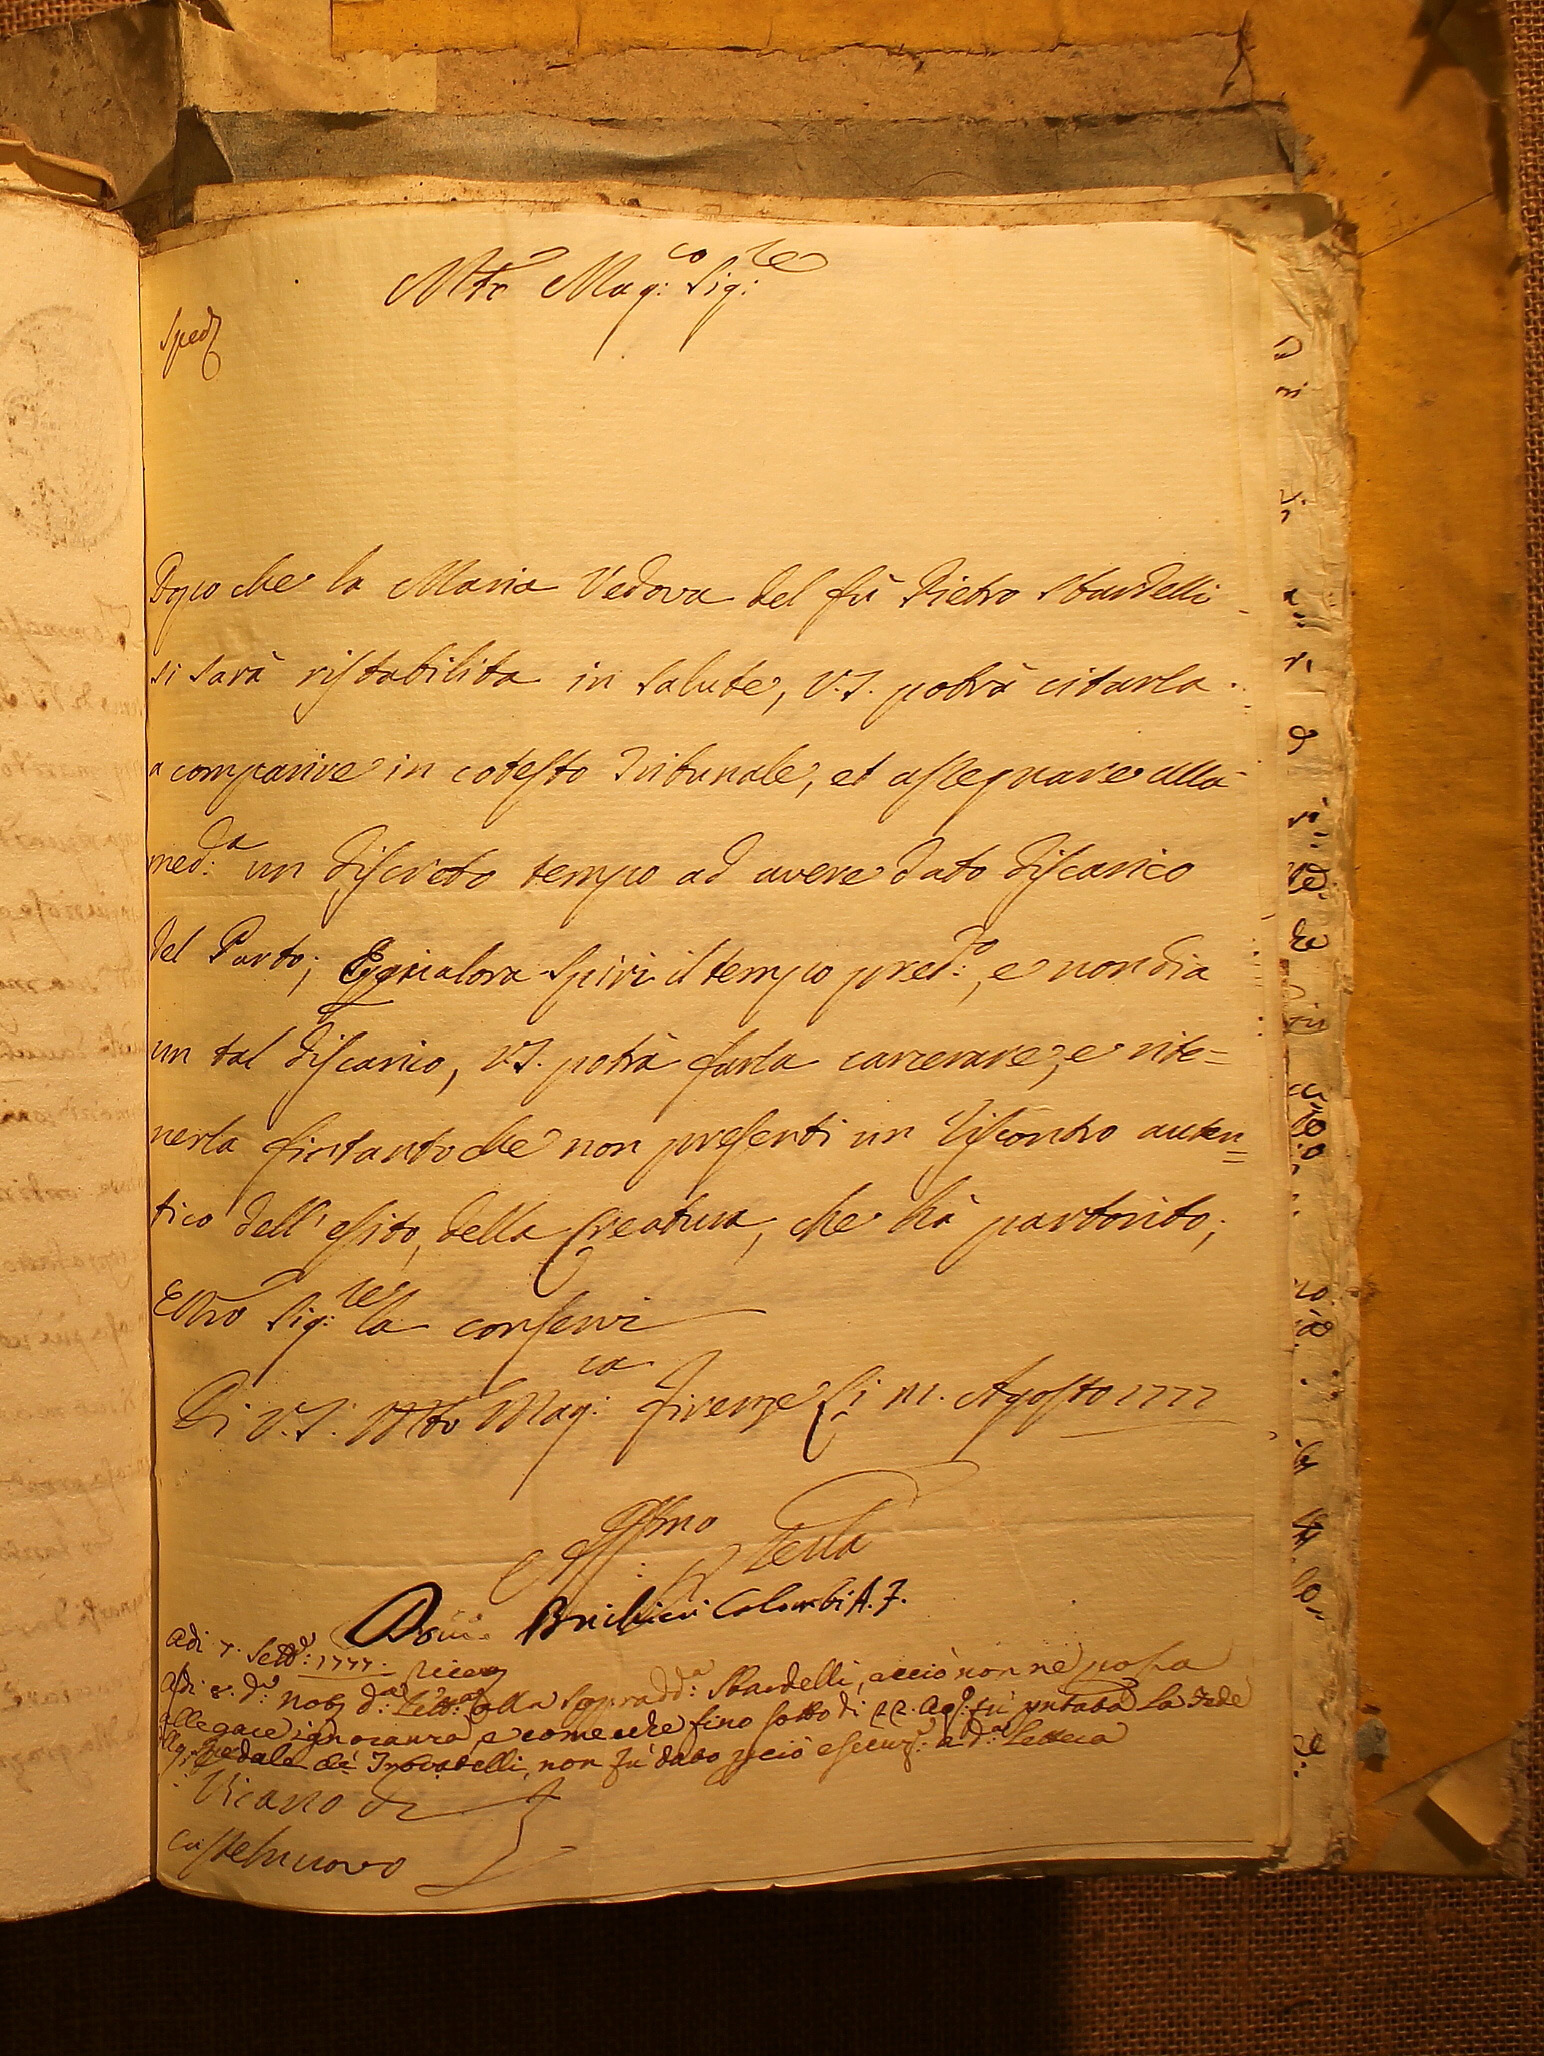 Mto Mag:co Sig:re
Sped
Dopo che la Maria Vedova del fù Pietro Sbardelli
si sarà ristabilita in salute, V.S. potrà citarla
a comparire in cotesto Tribunale, et assegnare alla
med:a un discreto tempo ad avere dato discarico
del Parto; E qualora spiri il tempo pred:o, e non dia
un tal discarico, V.S. potrà farla carcerare, e rite=
nerla fintanto che non presenti un riscontro auten=
tico dell' esito, della Creatura, che hà partorito;
E Nro Sig:re la conservi
Di V.S. Mto Mag:ca Firenze li 11. Agosto 1777
Affmo Per Serla
Domco Brichieri Colombi A. F.
Adi 7. Settb: 1777. Ricev
Adi 8. do: Notif da Lett:a alla sopradd:a Sbardelli, acciò non ne possa
allegare ignoranza, e come che fino sotto di 22. Ago: fù pntata la Fede
Spedale de' Trovatelli, non fù dato perciò esecuz: a da: Lettera
Vicario di
Castelnuovo